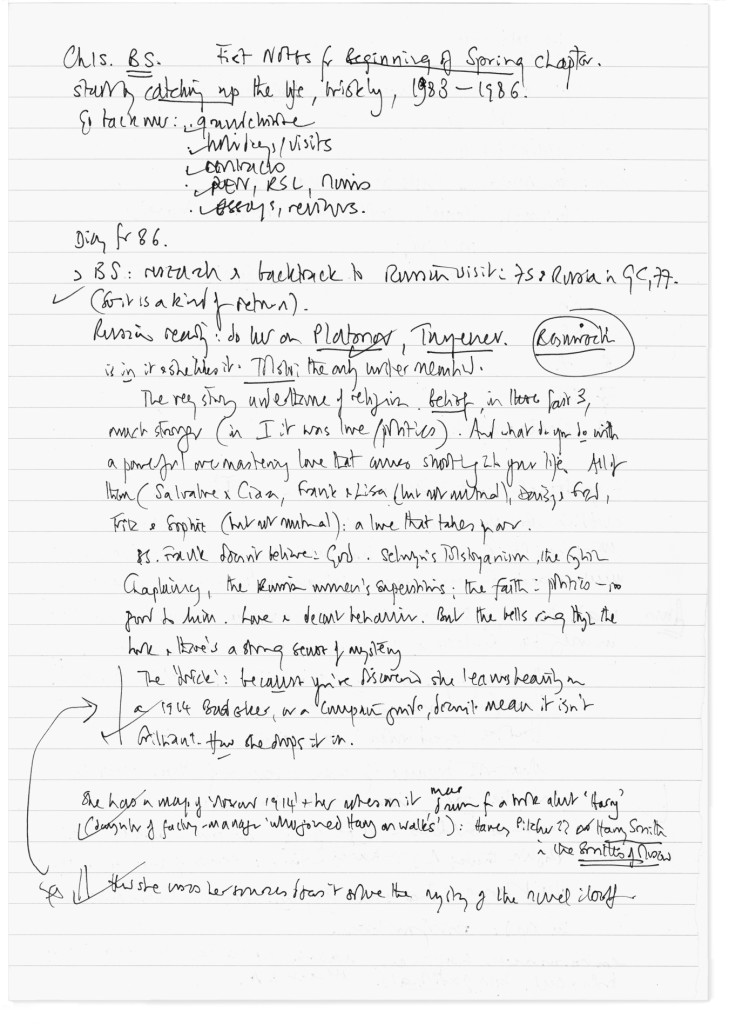 Ch15. BS. First Notes for Beginning of Spring chapter.
start by catching up the life, briskly, 1983 – 1986.
go back over: grandchildren
holidays/visits
contracts
PEN, RSL,
essays, reviews.
Diary for 86.
BS: research & backtrack to Russian visit: 75 & Russia in GC, 77.
(so it is a kind of return).
Russian reading: do her on Platonov, Turgenev. Resurrection
is in it & she likes it. Tolstoi the only writer mentioned.
The very strong undertone of religion belief, in these last 3,
much stronger (in I it was love/politics). And what do you do with
a powerful overmastering love that comes shortly in your life. All of
them (Salvatore & Chiara, Frank & Lisa (but not mutual), Daisy & Fred,
Fritz & Sophie (but not mutual): a love that takes over.
BS. Frank doesn't believe in God. Selwyn's Tolstoyanism, the English
Chaplaincy, the Russian women's superstitions; the faith in politics – no
good to him. Love & decent behaviour. But the bells ring thro the
book & there's a strong sense of mystery
The 'trick': because you've discovered she leans heavily on
a 1914 Baedeker, or a computer guide, doesn't mean it isn't
brilliant. How she drops it in.
She has a map of 'Moscow 1914' + her notes on it from a book about 'Harry'
(daughter of factory-manager 'who joined Harry on walks'): Harvey Pitcher?? or Harry Smith
in the Smiths of Moscow
How she uses her sources doesn't solve the mystery of the novel itself.